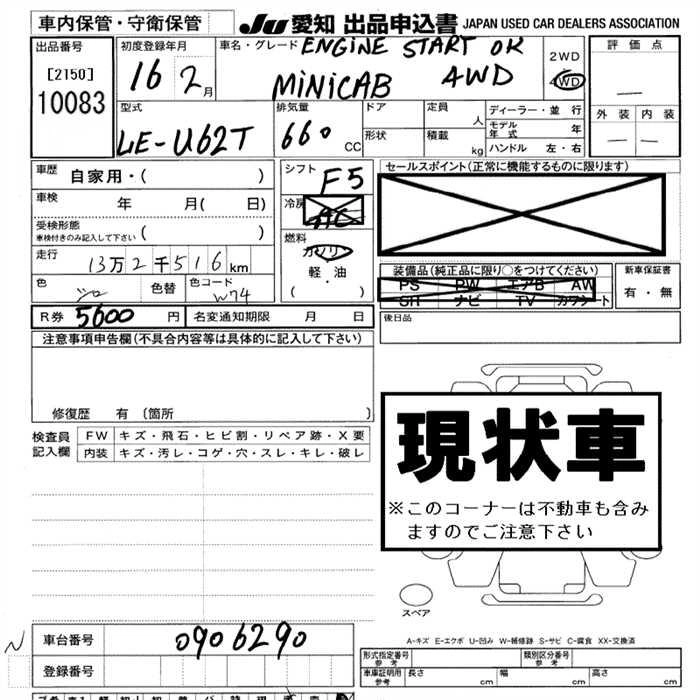 車内保管・守衛保管
JU 愛知 出品申込書 JAPAN USED CAR DEALERS ASSOCIATION
出品番号
[2150]
10083
初度登録年月
16 2月
車名・グレード ENGINE START OK
MINICAB 4WD
2WD
4WD
評価点
外装 内装
型式
LE-U62T
排気量
660 CC
ドア
定員 人
形状
積載 kg
ディーラー・並行
モデル年式 年
ハンドル 左・右
車歴 自家用・( )
車検 年 月( 日)
受検形態
車検付きのみ記入して下さい ( )
走行 13万2千516km
色 シロ 色替 色コード W74
シフト F5
冷房 AC
燃料
ガソリン
軽・油
・( )
セールスポイント(正常に機能するものに限ります)
装備品(純正品に限り○をつけてください)
PS PW エアB AW
SR ナビ TV カワシート
新車保証書
有・無
R券 5600 円 名変通知期限 月 日
後日品
注意事項申告欄(不具合内容等は具体的に記入して下さい)
修復歴 有 〔箇所 〕
検査員記入欄
FW キズ・飛石・ヒビ割・リペア跡・X要
内装 キズ・汚レ・コゲ・穴・スレ・キレ・破レ
現状車
※このコーナーは不動車も含み
ますのでご注意下さい
スペア
A-キズ E-エクボ U-凹み W-補修跡 S-サビ C-腐食 XX-交換済
N
車台番号 0906290
登録番号
形式指定番号 参考
類別区分番号 参考
車庫証明用 参考
長さ cm 幅 cm 高さ cm